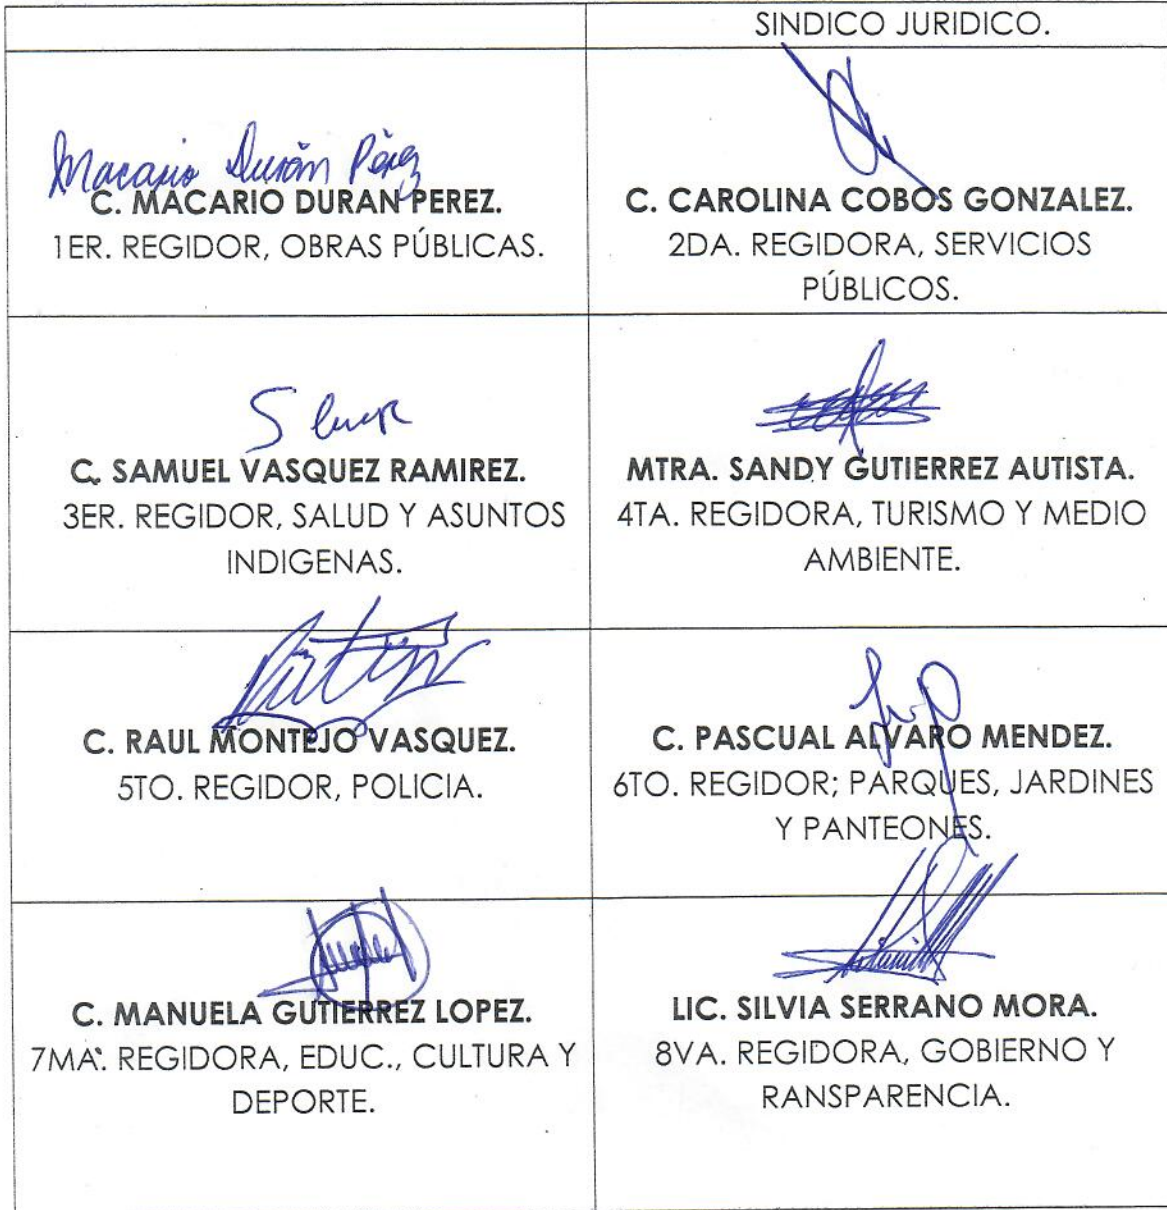 SINDICO JURIDICO.
Macario Durán Pérez
C. MACARIO DURAN PEREZ.
1ER. REGIDOR, OBRAS PÚBLICAS.
C. CAROLINA COBOS GONZALEZ.
2DA. REGIDORA, SERVICIOS
PÚBLICOS.
C. SAMUEL VASQUEZ RAMIREZ.
3ER. REGIDOR, SALUD Y ASUNTOS
INDIGENAS.
MTRA. SANDY GUTIERREZ AUTISTA.
4TA. REGIDORA, TURISMO Y MEDIO
AMBIENTE.
C. RAUL MONTEJO VASQUEZ.
5TO. REGIDOR, POLICIA.
C. PASCUAL ALVARO MENDEZ.
6TO. REGIDOR; PARQUES, JARDINES
Y PANTEONES.
C. MANUELA GUTIERREZ LOPEZ.
7MA. REGIDORA, EDUC., CULTURA Y
DEPORTE.
LIC. SILVIA SERRANO MORA.
8VA. REGIDORA, GOBIERNO Y
RANSPARENCIA.